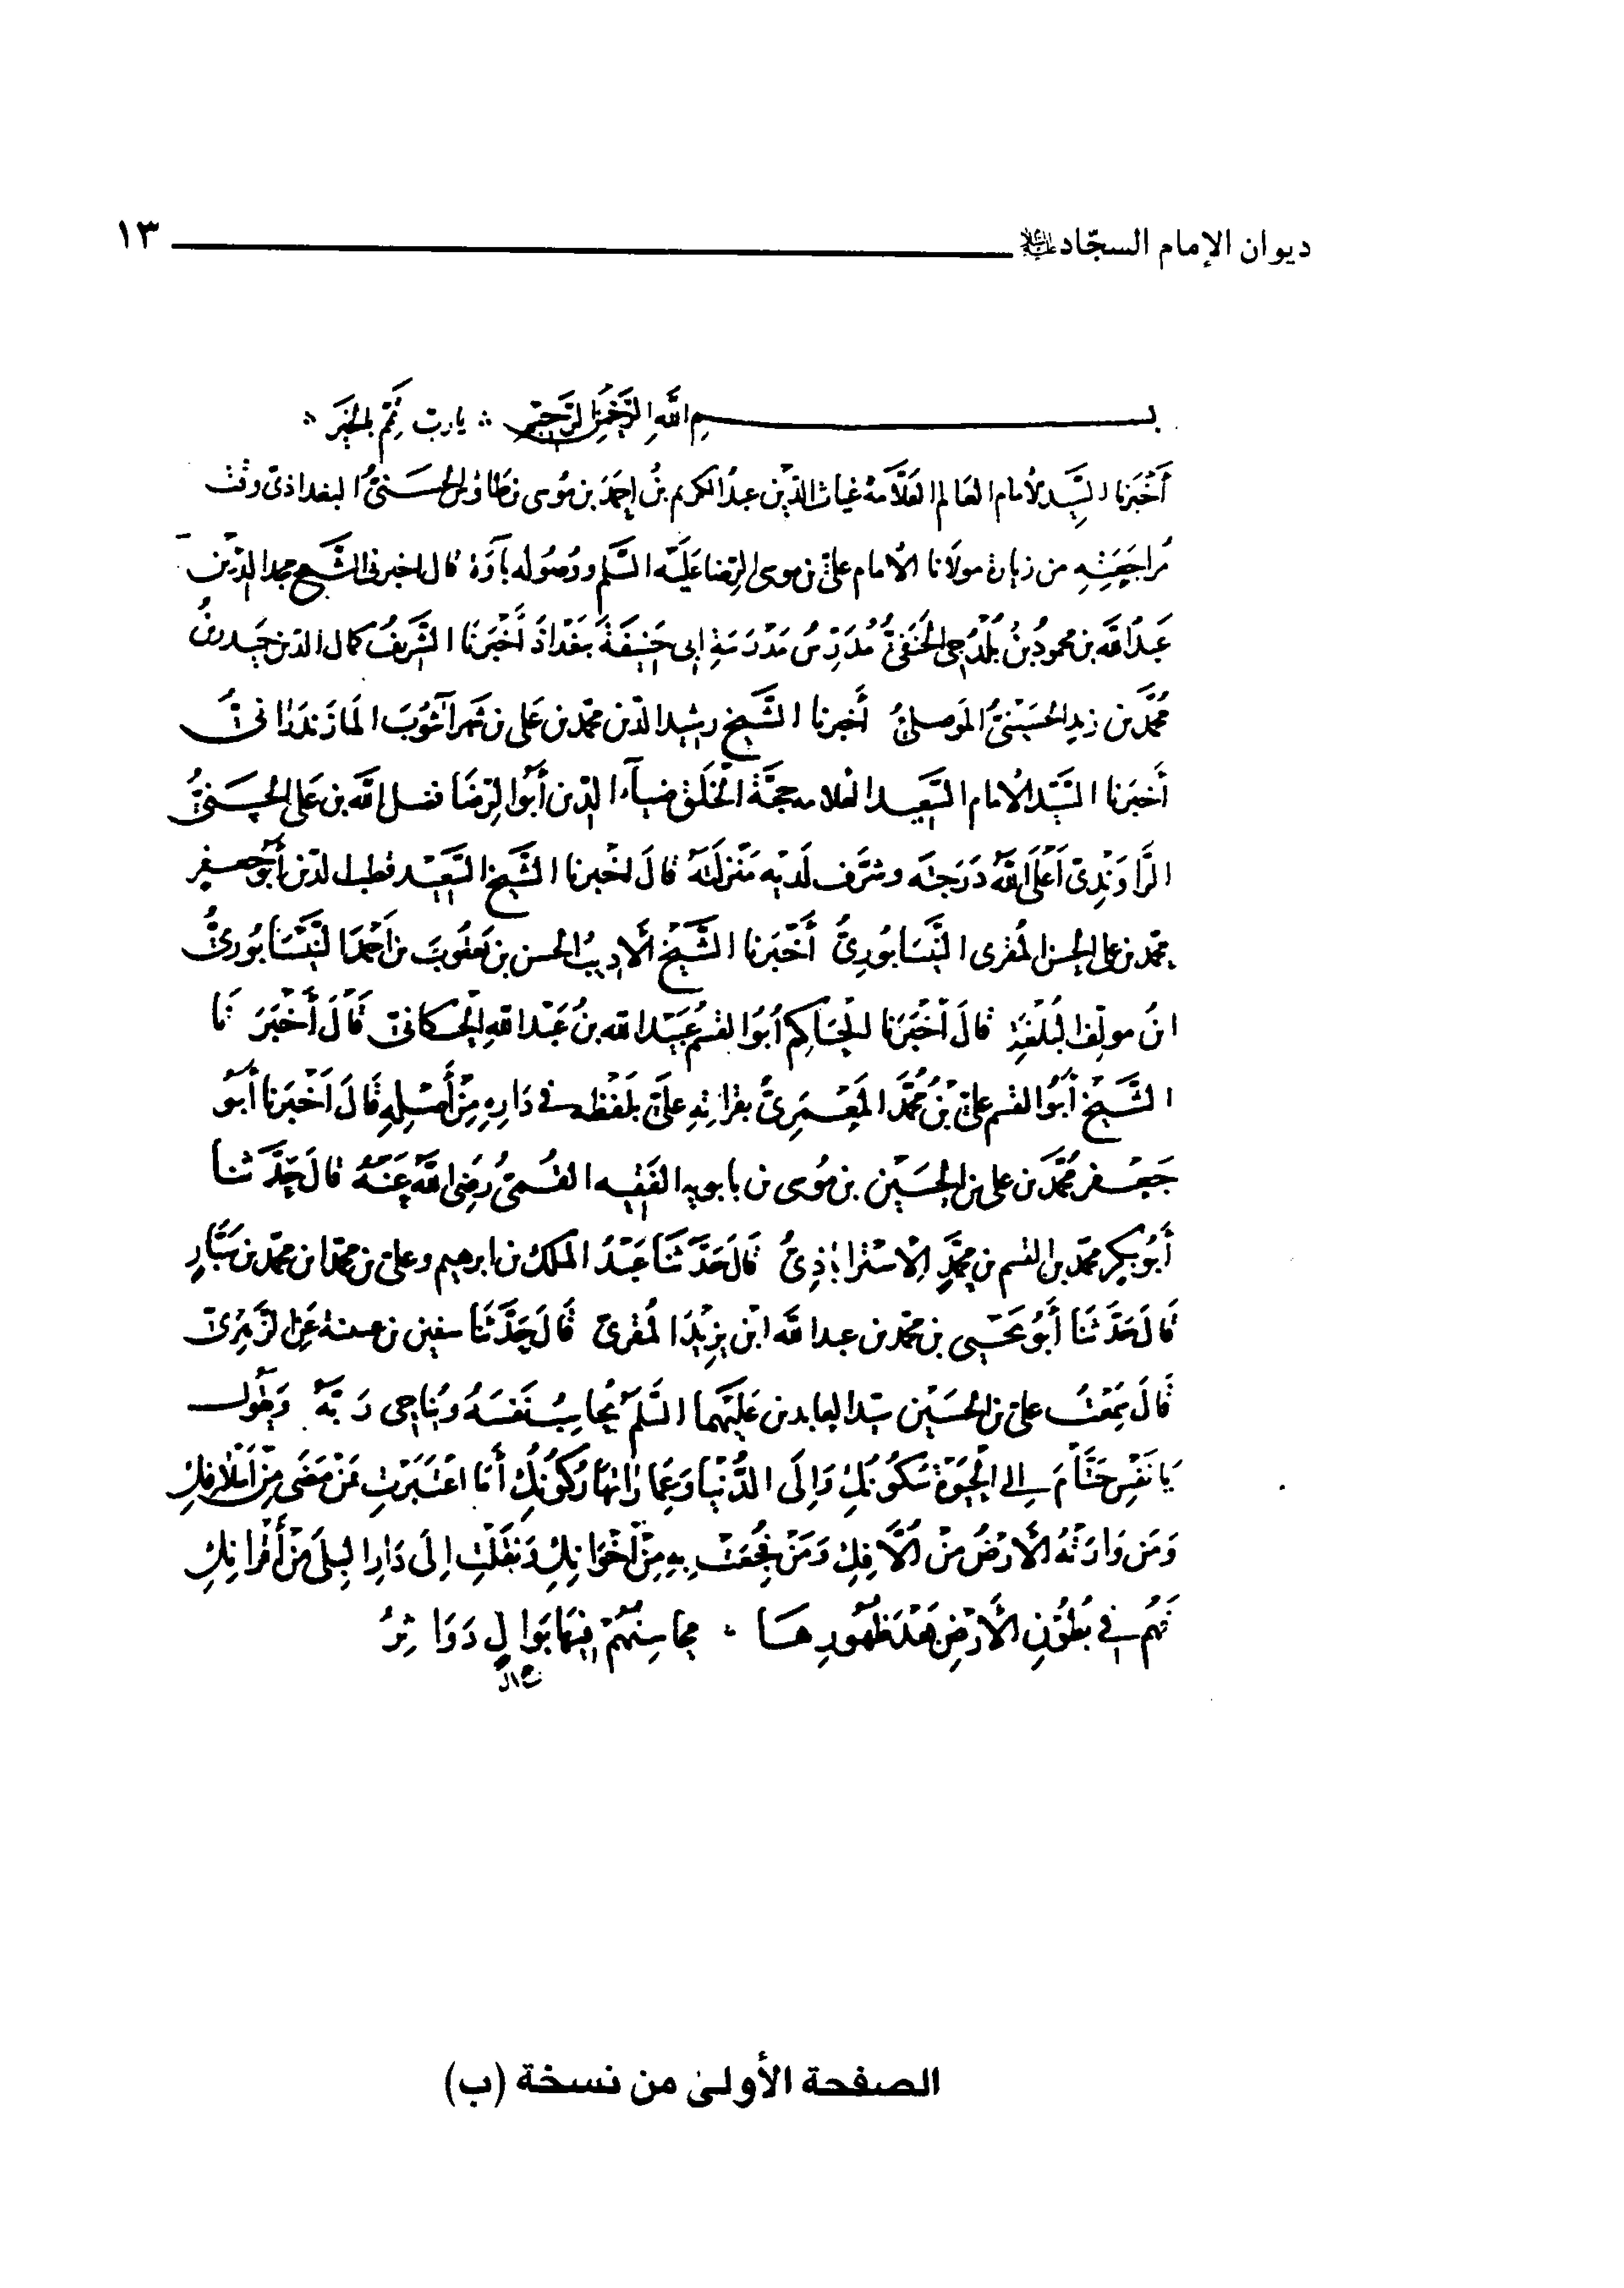 ديوان الإمام السجّاد عليه السلام ١٣
بسم الله الرحمن الرحيم ۞ يا ربّ تمّم بالخير ۞
أَخْبَرَنا السَّيِّد الامام العالم العلّامة غياث الدّين عبد الكريم بنُ احمد بن مُوسى بن طاؤس الحَسَنيُّ البغداذيّ وقت
مُراجَعَتِهِ من زيارة مولانا الامام عليّ بن موسى الرّضا عَلَيْه السَّلم ووصُوله بآوَة قال اخبرنى الشَّيخ مجد الدّين
عَبْدُ الله بن محمود بنُ بَلْدَجى الحَنَفيُّ مُدَرِّسُ مَدْرَسَةِ ابى حَنيفَةَ بَغْدَاذَ أَخْبَرَنَا الشَّرِيفُ كمال الدّين حَيْدر بنُ
مُحَمَّد بن زيد الحُسَيْنيُّ المَوصليُّ أَخبرنا الشَّيخ رشيد الدّين محمّد بن عَلى بن شهرآشوبَ المَازَنْدَرَانىّ
أَخبَرنا السَّيِّد الامام السَّعيد العلامه حجّة الخَلَق ضيآء الدّين أَبُو الرّضَا فضل الله بن عَلى الحَسَنيُّ
الرَّاوَنْدِىّ اَعْلَى اللهُ دَرَجتَه وشرَّف لَديْه مَنْزِلَتَهُ قالَ اخْبرنا الشَّيخ السَّعيْد قطب الدّين أَبُو جعفر
محمّد بن على الحسن المُقرى النَّيسَابُورِيّ أَخْبَرَنا الشَّيْخُ الاديبُ الحسن بن يَعقُوبَ بن اَحْمَدَ النَّيْسَابُوريُّ
ابنُ مولّف البُلْغَةِ قالَ أَخْبَرَنا الحَاكِم اَبُوَ القسم عُبَيْد الله بنُ عَبْد اللهِ الحَسكانىّ قَالَ أَخْبَرَ نَا
الشَّيخُ أَبُو القسم عليّ بْنُ مُحَمَّد المَعْمَرِىُّ بقراتهِ علَيّ بلَفْظه فى دَارِهِ مِنْ أَصْلِهِ قَالَ اَخْبَرَنا أَبُو
جَعْفر مُحَمَّد بن على بن الحسَيْن بن مُوسى بن بابويه الفَقيه القُمىُّ رضى اللهُ عَنْهُ قالَ حَدَّ ثنا
أَبُو بَكر محمّد بن القسم بن مُحَمَّدٍ الاِسْتراباذِىُّ قَالَ حَدَّ ثَنَا عَبْدُ الملك بن ابرهيم وعلى بن محمّد ابن محمّد بن سَيَّارٍ
قَالَ حَدَّ ثَنَا أَبُو يَحْيى بن محمّد بن عبد الله ابن يزيْدَ المُقرىّ قَالَ حَدَّثَنَا سفين بن عيينة عَن الزّهْرىّ
قَالَ سَمِعْتُ علىّ بن الحُسَيْن سيّد العابدين عَلَيْهِما السَّلَم يُحاسِبُ نَفسَهُ ويُناجى رَ بَّهُ وَيَقُولُ
يَا نَفسِ حَتَّامَ الى الحَيَوةِ سُكُونُكِ وَاِلَى الدُّنْيا وَعِمَارَاتِهَا رُكُونُكِ أَمَا اعْتَبَرْتِ بمَنْ مَضَى مِنْ اَسْلافِكِ
وَمَن وَارَتْهُ الأَرْضُ مِنْ الأَّفِكِ وَمَنْ فُجِعَتْ بِهِ مِنْ اِخْوَانِكِ وَنَقَلْتِ اِلَى دَارِ البِلَى مِنْ أَقْرَانِكِ
فَهُمْ فى بُطُوْنِ الأَرْضِ بَعْدَ ظُهُورِهَا ۞ مَحَاسِنُهُمْ فيْهَا بَوَالٍ دَوَا ثِرُ
الصفحة الأولىٰ من نسخة (ب)